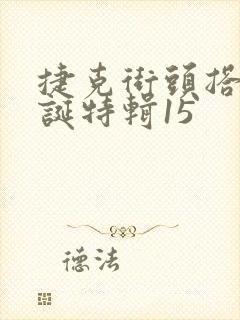 捷克街頭搭
誕特輯15
德法